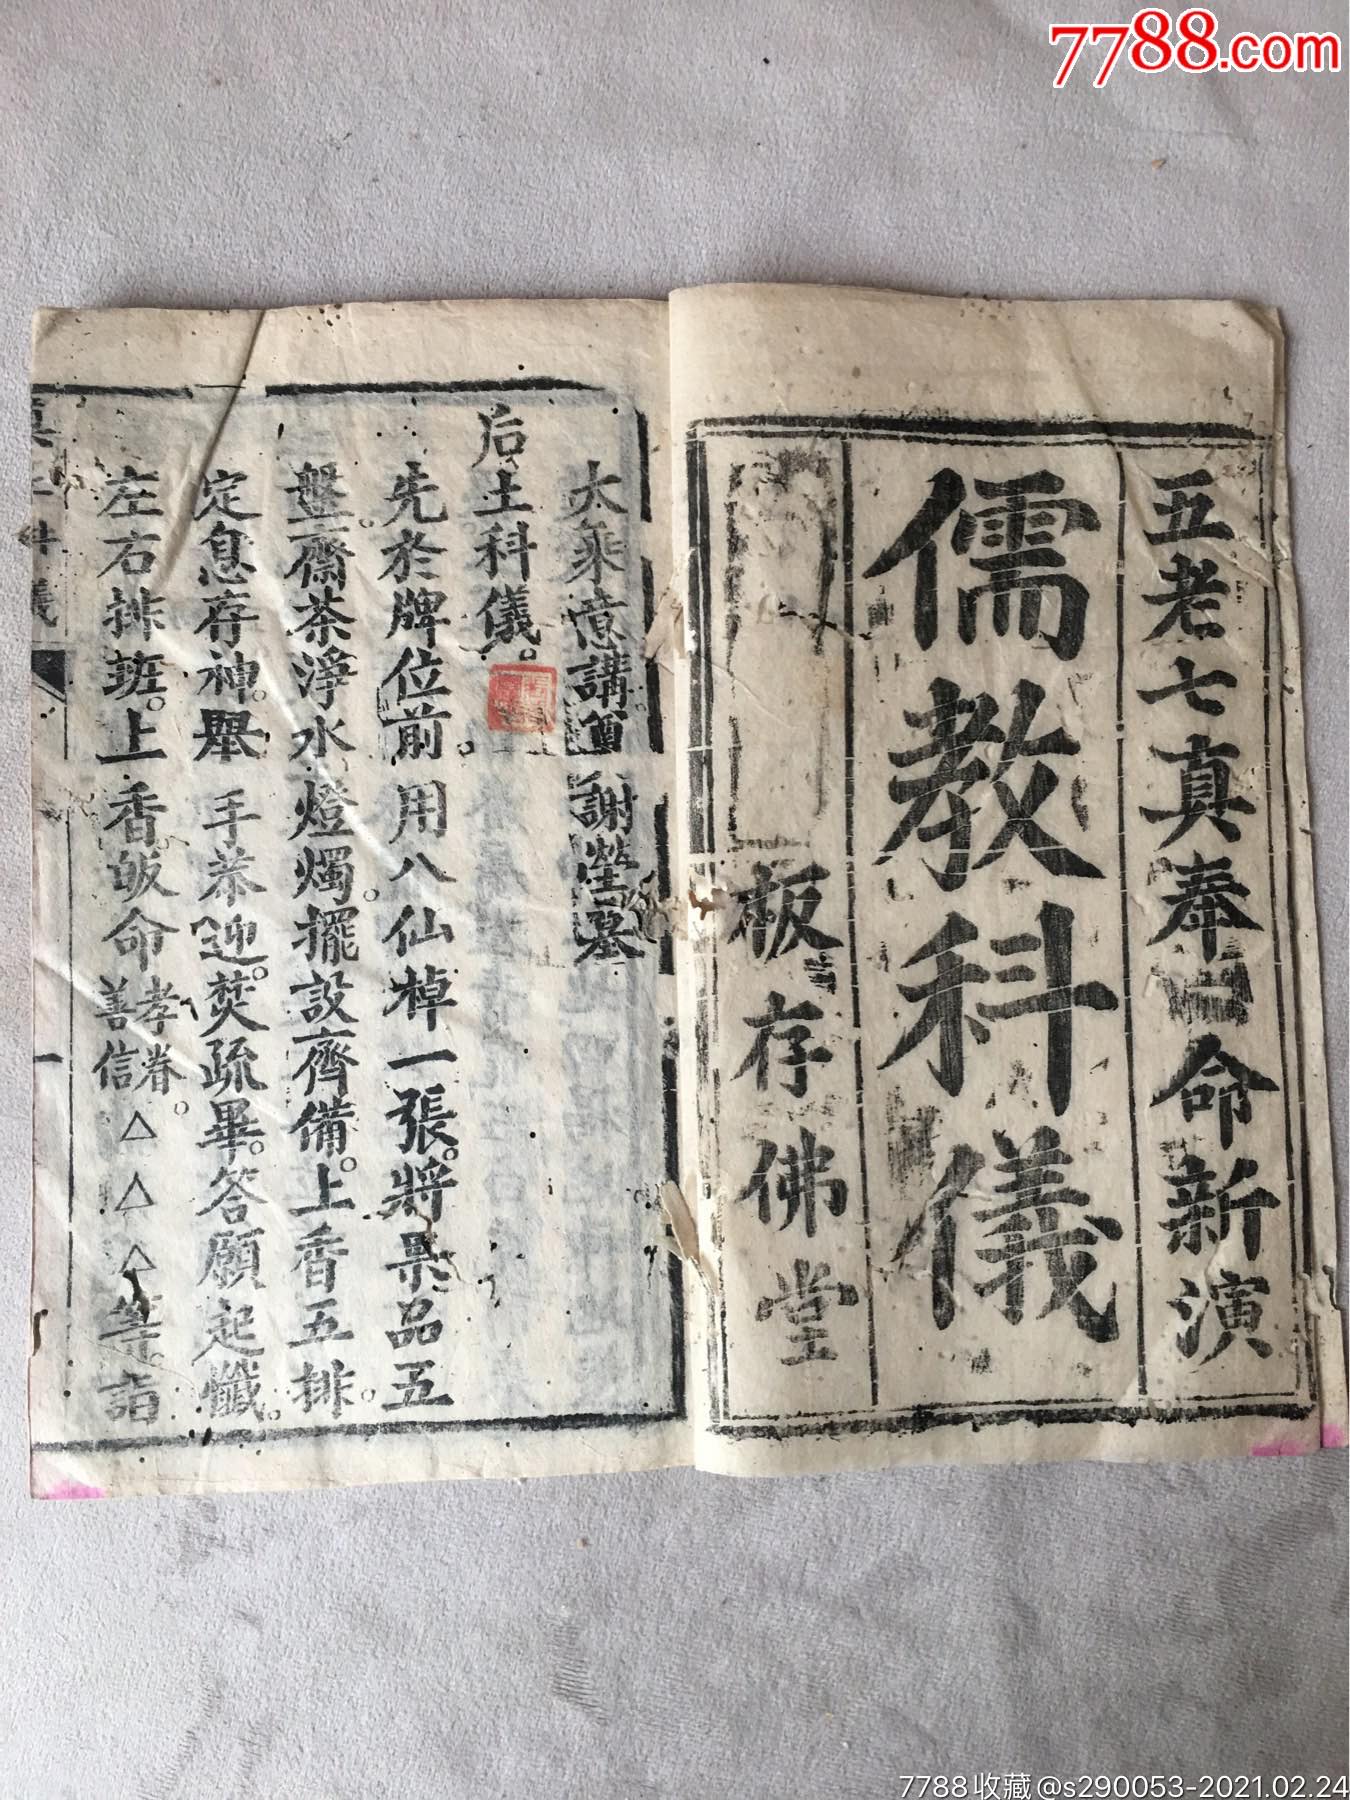 7788.com
五老七真奉命新演
儒教科儀
板存佛堂
大乘意講 謝塋墓
后土科儀。
先於牌位前。用八仙棹一張。將果品五
盤。齋茶淨水。燈燭。擺設齊備。上香五排。
定息存神。舉手恭迎。焚疏畢。答願起懺。
左右排班。上香皈命孝眷善信。△△△等。詣
一
7788收藏@s290053-2021.02.24